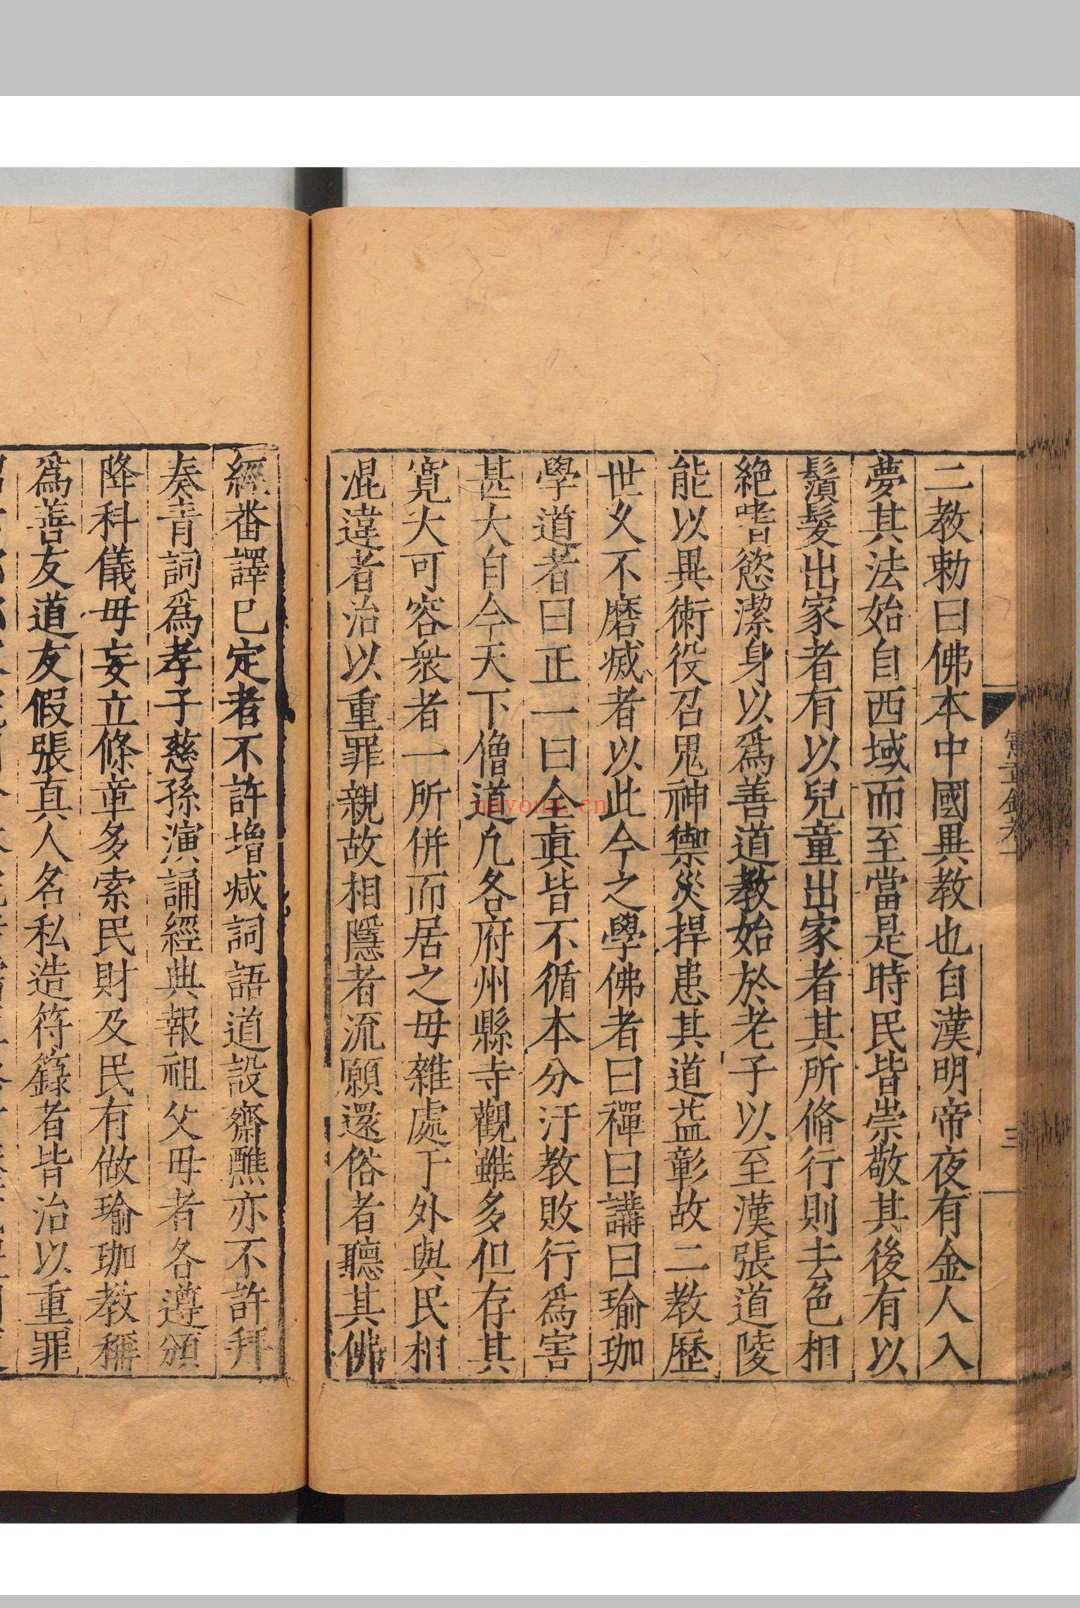 二教勅曰佛本中國異教也自漢明帝夜有金人入
夢其法始自西域而至當是時民皆崇敬其後有以
鬚髮出家者有以兒童出家者其所脩行則去色相
絶嗜慾潔身以爲善道教始於老子以至漢張道陵
能以異術役召鬼神禦災捍患其道益彰故二教歷
世久不磨滅者以此今之學佛者曰禪曰講曰瑜珈
學道者曰正一曰全眞皆不循本分汙教敗行爲害
甚大自今天下僧道凡各府州縣寺觀雖多但存其
寬大可容衆者一所併而居之毋雜處于外與民相
混違者治以重罪親故相隱者流願還俗者聽其佛
憲章錄卷一
三
經番譯已定者不許増减詞語道設齋醮亦不許拜
奏青詞爲孝子慈孫演誦經典報祖父母者各遵頒
降科儀毋妄立條章多索民財及民有做瑜珈教稱
爲善友道友假張真人名私造符籙者皆治以重罪
nayouz.cn